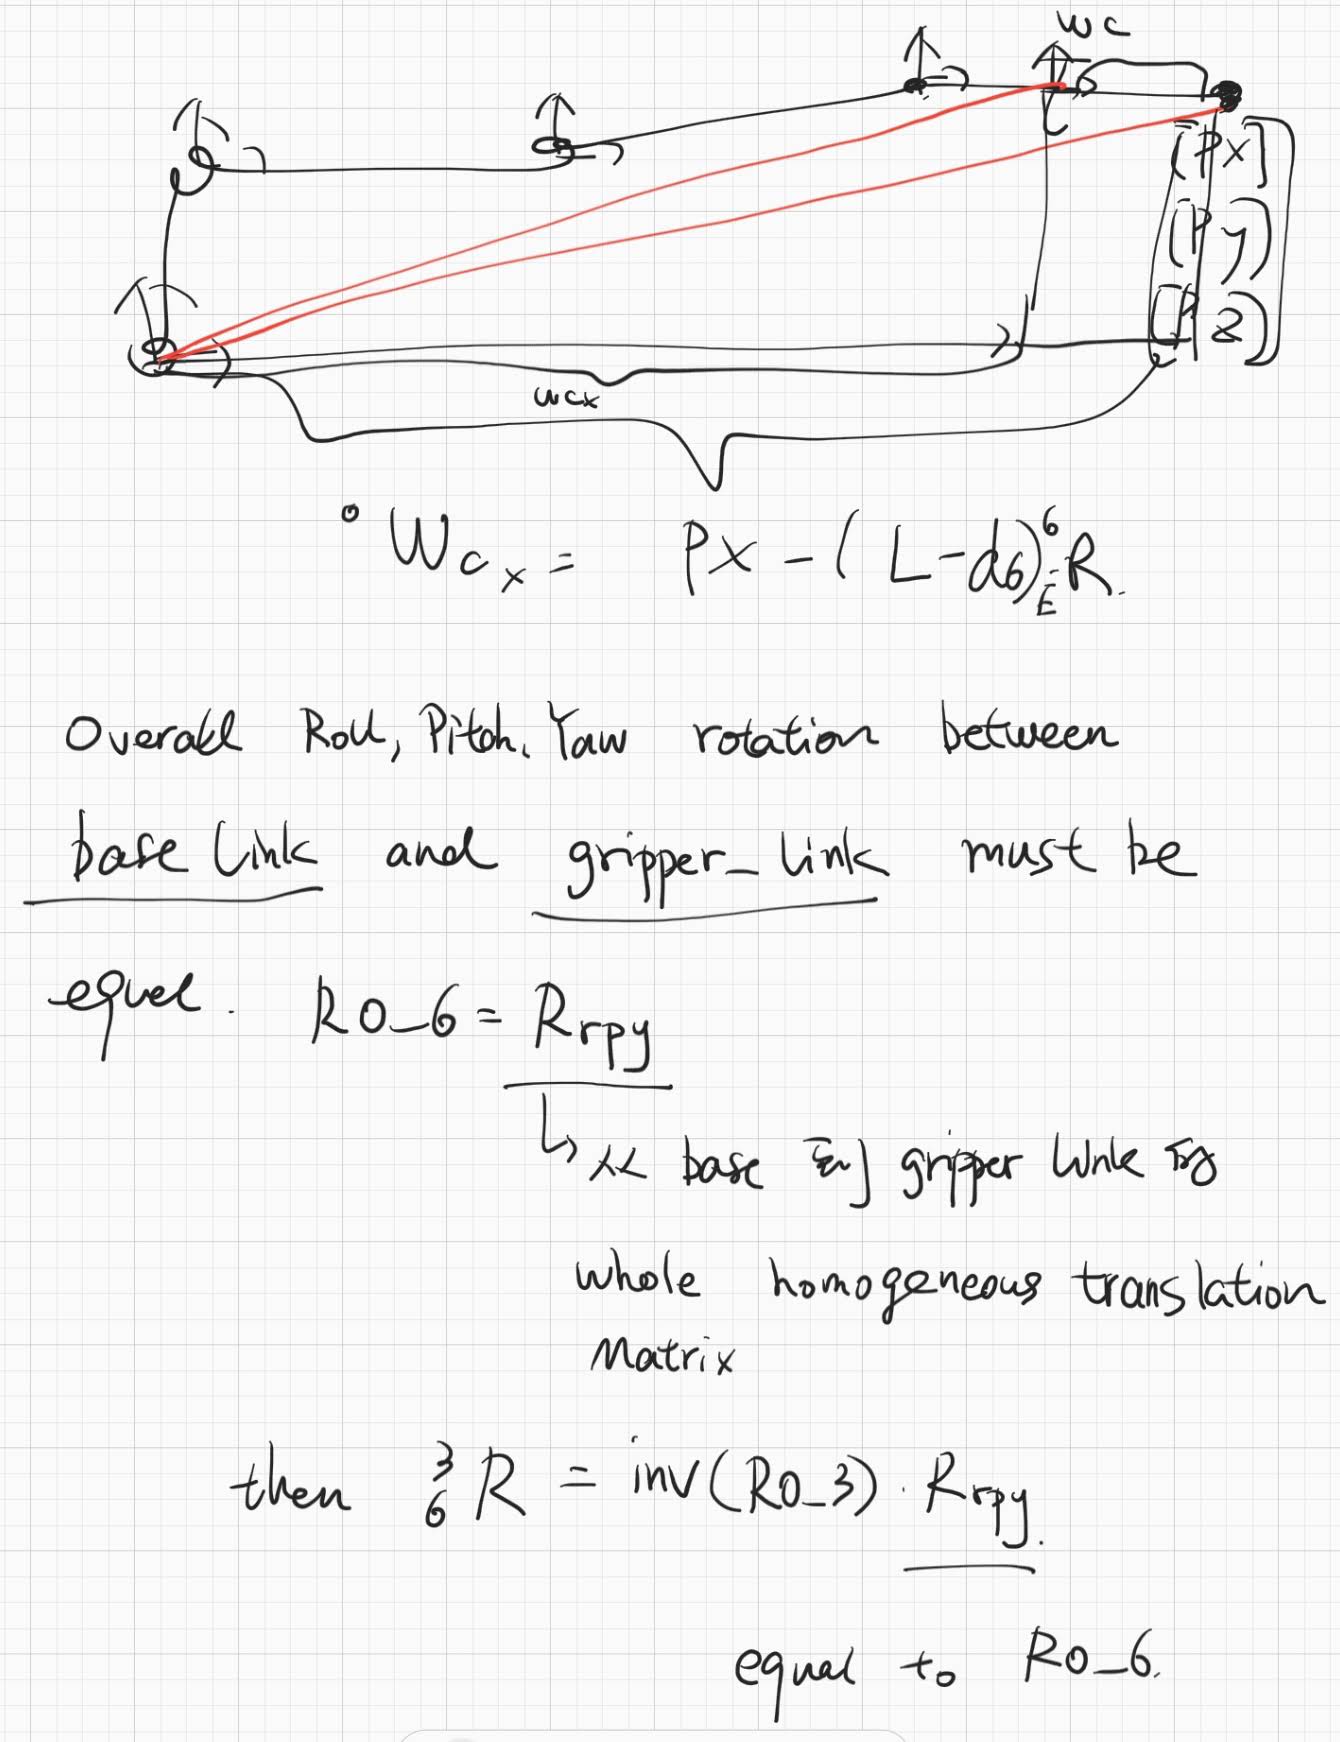 wc
[Px]
[Py]
[Pz]
wcx
⁰Wcₓ = Px - (L-d6) ⁶ᴇR.
Overall Roll, Pitch, Yaw rotation between
base link and gripper_link must be
equal. R0_6 = Rrpy
↳ base gripper link
whole homogeneous translation
Matrix
then ³₆R = inv(R0_3) · Rrpy.
equal to R0_6.